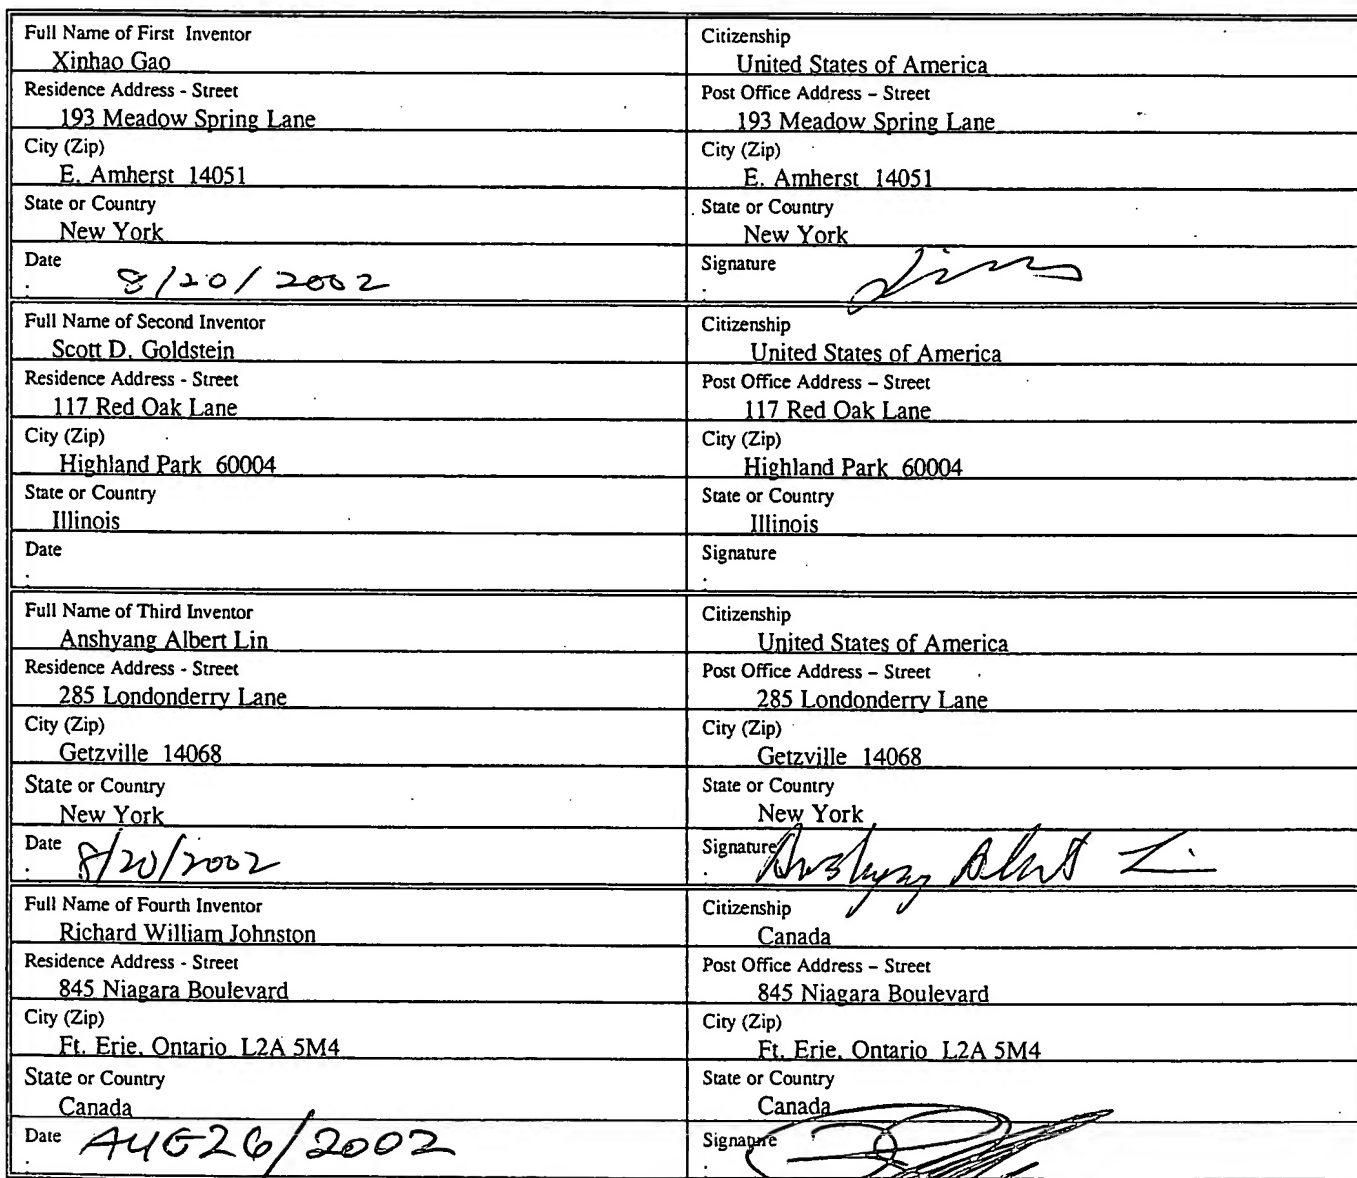 Full Name of First Inventor
Xinhao Gao
Citizenship
United States of America
Residence Address - Street
193 Meadow Spring Lane
Post Office Address – Street
193 Meadow Spring Lane
City (Zip)
E. Amherst 14051
City (Zip)
E. Amherst 14051
State or Country
New York
State or Country
New York
Date
8/20/2002
Signature
Full Name of Second Inventor
Scott D. Goldstein
Citizenship
United States of America
Residence Address - Street
117 Red Oak Lane
Post Office Address – Street
117 Red Oak Lane
City (Zip)
Highland Park 60004
City (Zip)
Highland Park 60004
State or Country
Illinois
State or Country
Illinois
Date
Signature
Full Name of Third Inventor
Anshyang Albert Lin
Citizenship
United States of America
Residence Address - Street
285 Londonderry Lane
Post Office Address – Street
285 Londonderry Lane
City (Zip)
Getzville 14068
City (Zip)
Getzville 14068
State or Country
New York
State or Country
New York
Date 8/20/2002
Signature Anshyang Albert Lin
Full Name of Fourth Inventor
Richard William Johnston
Citizenship
Canada
Residence Address - Street
845 Niagara Boulevard
Post Office Address – Street
845 Niagara Boulevard
City (Zip)
Ft. Erie, Ontario L2A 5M4
City (Zip)
Ft. Erie, Ontario L2A 5M4
State or Country
Canada
State or Country
Canada
Date AUG 26/2002
Signature